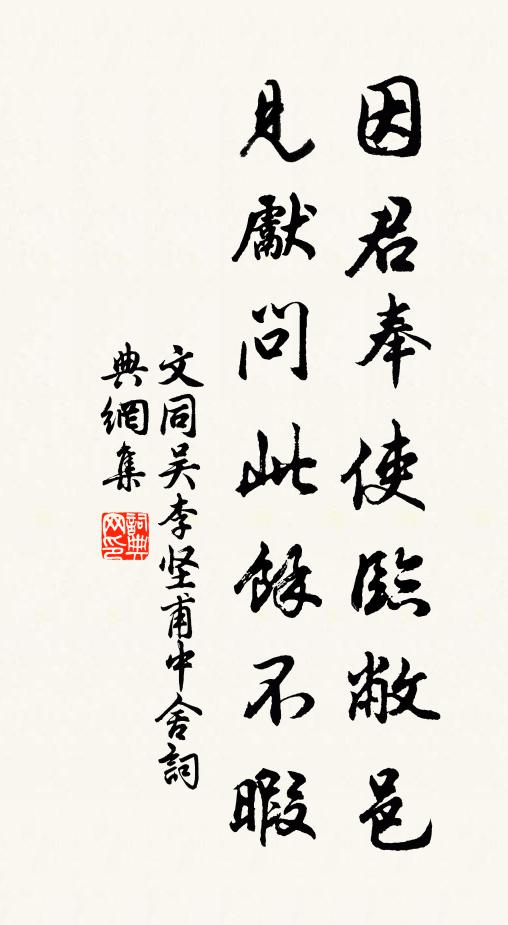 因君奉使臨敝邑
見獻問此餘不暇
文同吴李坚甫中舍詞
典網集
詞典网印